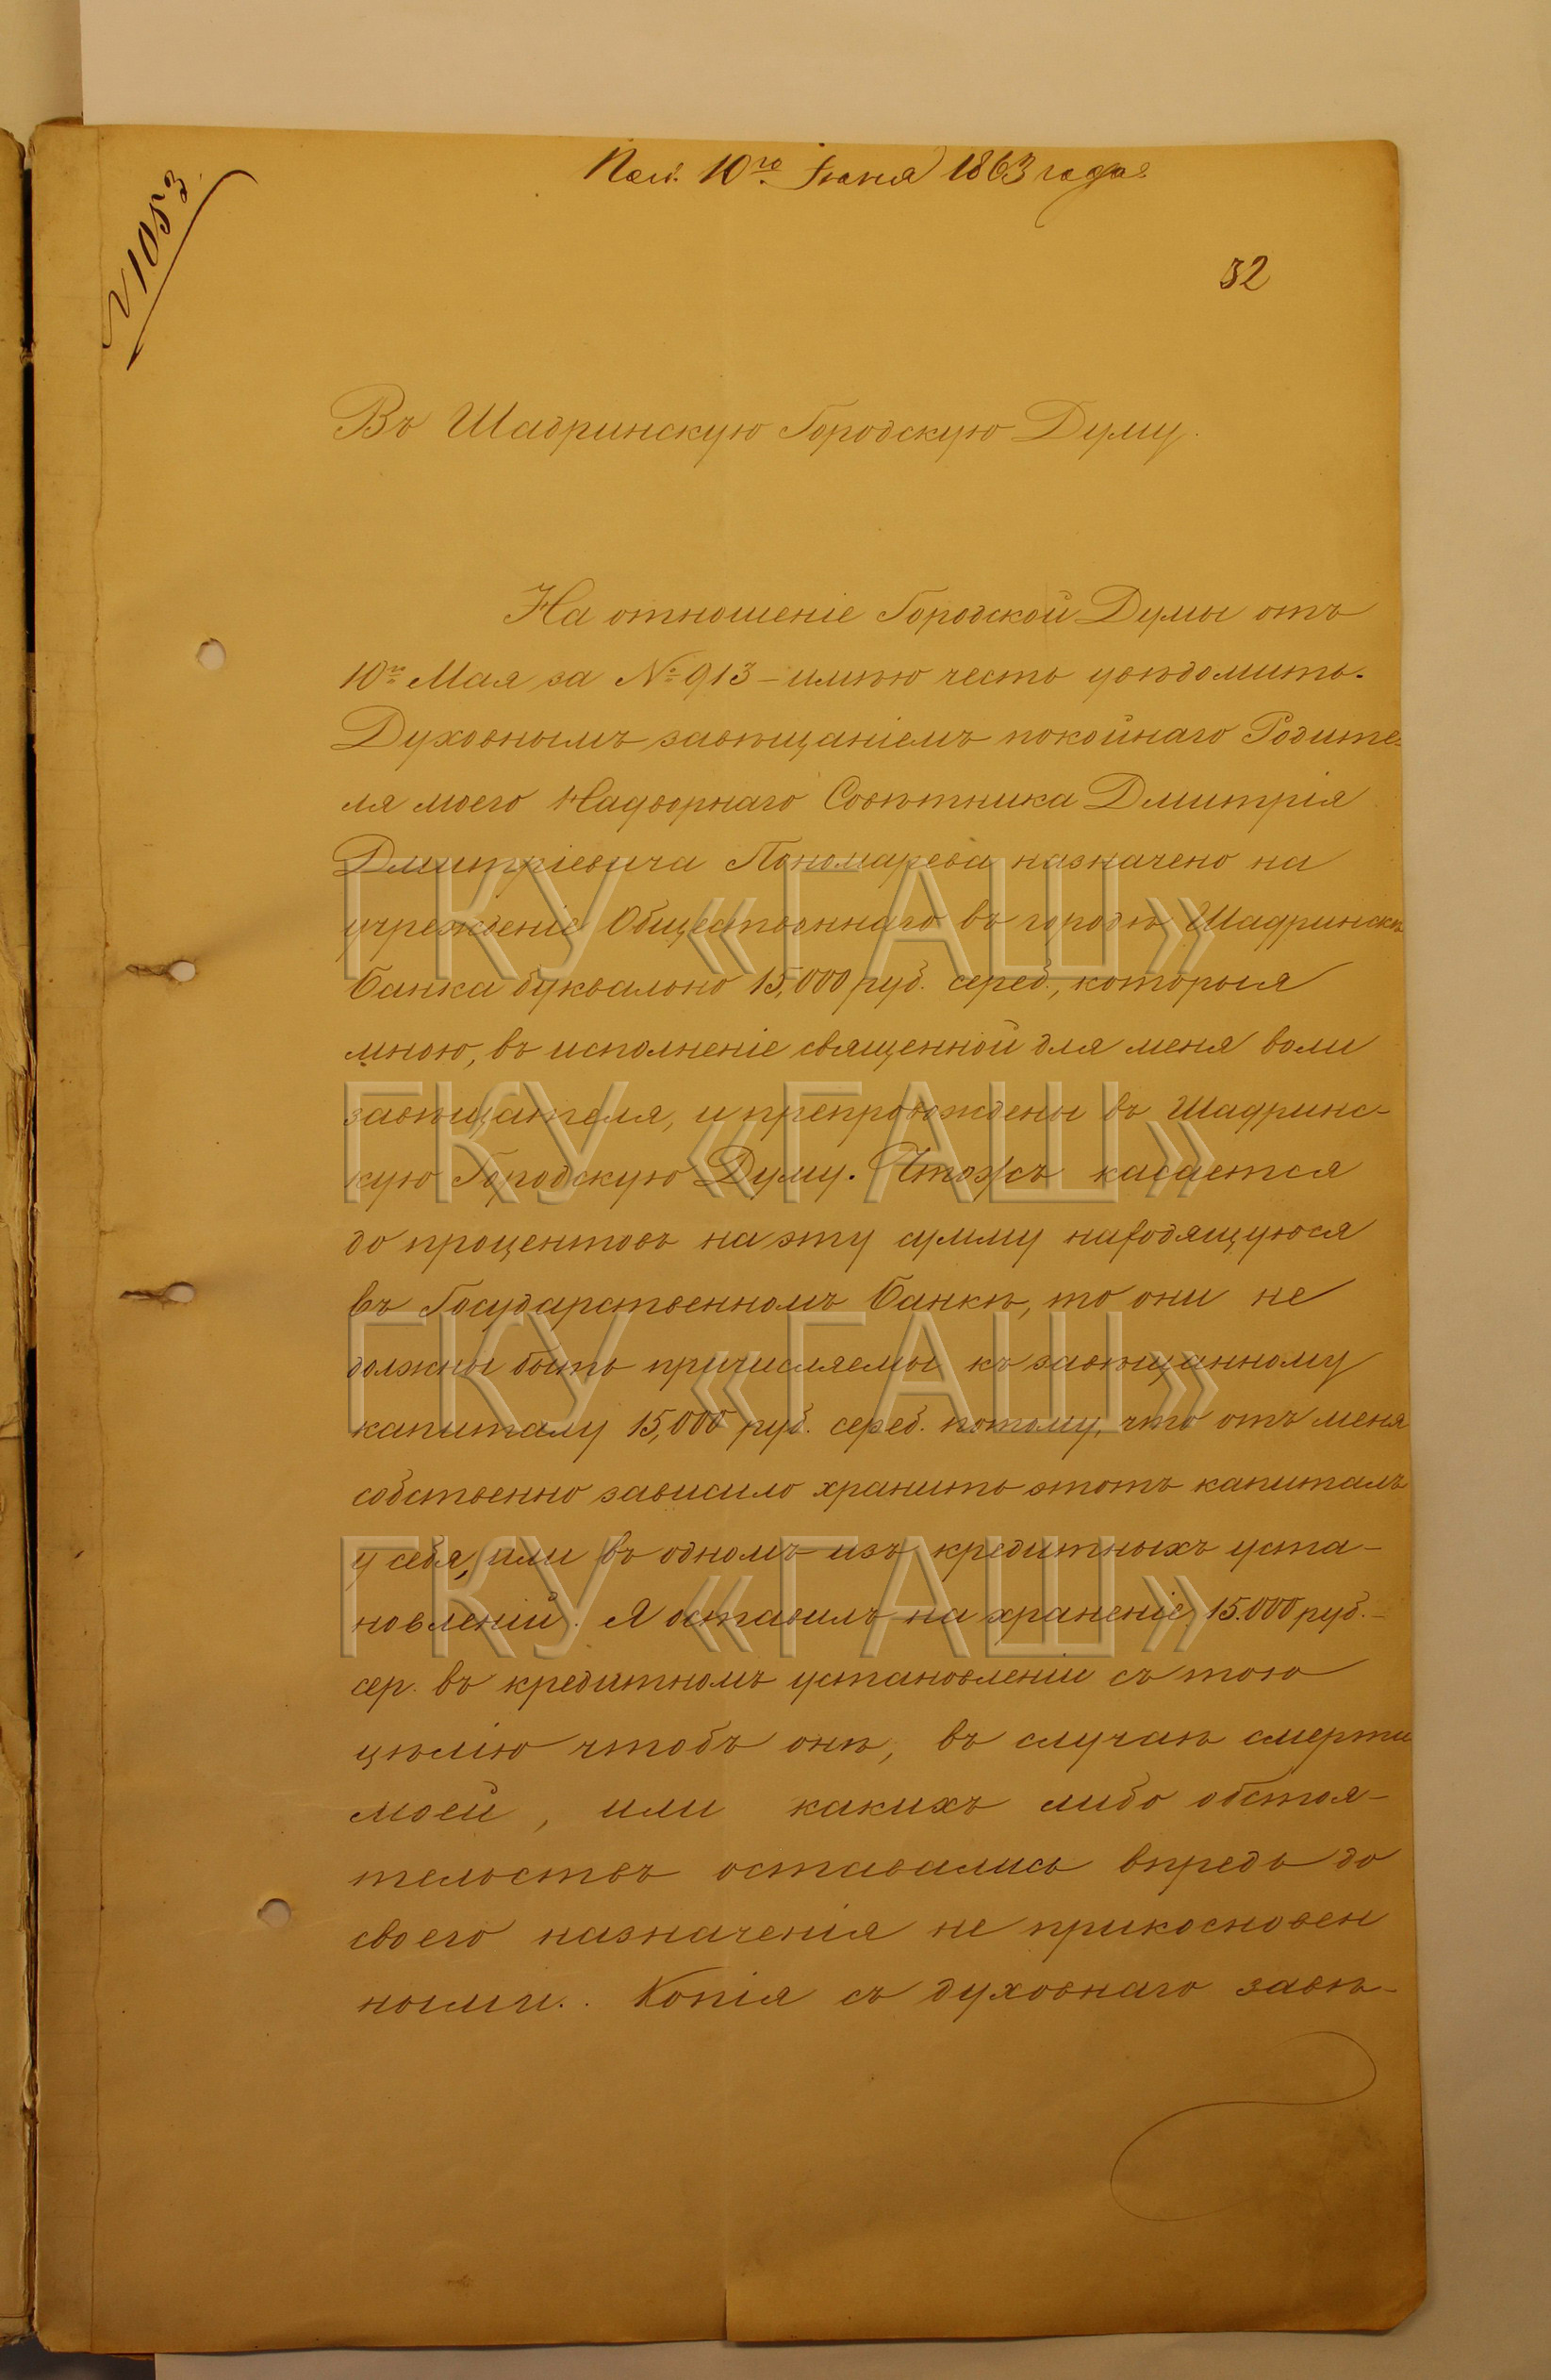 Пол. 10го Іюня 1863 года.
№ 1053.
32
Въ Шадринскую Городскую Думу.
На отношеніе Городской Думы отъ
10го Мая за № 913 – имѣю честь увѣдомить.
Духовнымъ завѣщаніемъ покойнаго Родите-
ля моего Надворнаго Совѣтника Дмитрія
Дмитріевича Пономарева назначено на
учрежденіе Общественнаго въ городѣ Шадринскѣ
банка буквально 15,000 руб. сереб., которыя
мною, въ исполненіе священной для меня воли
завѣщателя, и препровождены въ Шадринс-
кую Городскую Думу. Чтожъ касается
до процентовъ на эту сумму находящуюся
въ Государственномъ банкѣ, то они не
должны быть причисляемы къ завѣщанному
капиталу 15,000 руб. сереб. потому, что отъ меня
собственно зависило хранить этотъ капиталъ
у себя, или въ одномъ изъ кредитныхъ уста-
новленій. Я оставилъ на храненіе 15.000 руб.-
сер. въ кредитномъ установленіи съ тою
цѣлію чтобъ онѣ, въ случаѣ смерти
моей, или какихъ либо обстоя-
тельствъ оставались впредь до
своего назначенія не прикосновен
ными. Копія съ духовнаго завѣ-
ГКУ «ГАШ»
ГКУ «ГАШ»
ГКУ «ГАШ»
ГКУ «ГАШ»